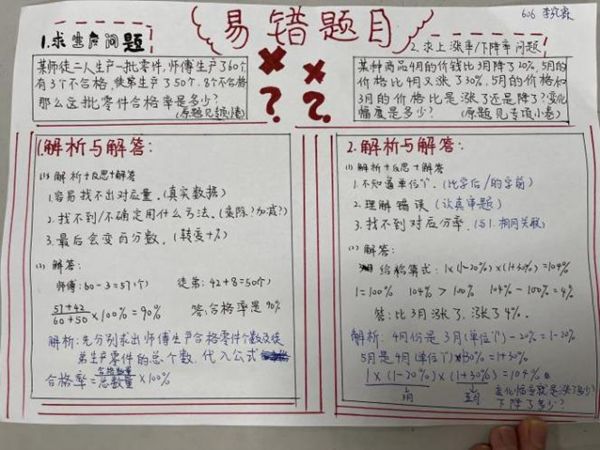 易错题目
606
1.求生产问题
某师徒二人生产一批零件,师傅生产了60个
有3个不合格,徒弟生产了50个,8个不合格
那么这批零件合格率是多少?
(原题见顾小卷)
2.求上涨率/下降率问题
某种商品4月的价钱比3月降了20%,5月的
价格比4月又涨了30%,5月的价格和
3月的价格比是涨了还是降了?变化
幅度是多少?
(原题见专项小卷)
1.解析与解答:
(1)解析+反思+解答
1.容易找不出对应量。(真实数据)
2.找不到/不确定用什么方法。(乘除?加减?)
3.最后会变百分数。(转变+%)
(2)解答:
师傅:60-3=57(个) 徒弟:42+8=50(个)
57+42/60+50×100%=90% 答:合格率是90%
解析:先分别求出师傅生产合格零件个数及徒
弟生产零件的总个数,代入公式
合格率=合格数量/总数量×100%
2.解析与解答:
(1)解析+反思+解答
1.不知道单位"1"。(比字后/的字前)
2.理解错误(认真审题)
3.找不到对应分率。
(2)解答:
给档集式:1×(1-20%)×(1+30%)=104%
1=100% 104%>100% 104%-100%=4%
答:比3月涨了,涨了4%。
解析:4月份是3月(单位"1")-20%=1-20%
5月是4月(单位"1")+30%=1+30%
1×(1-20%)×(1+30%)=104%。
变化幅度就是涨了多少?
下降了多少?